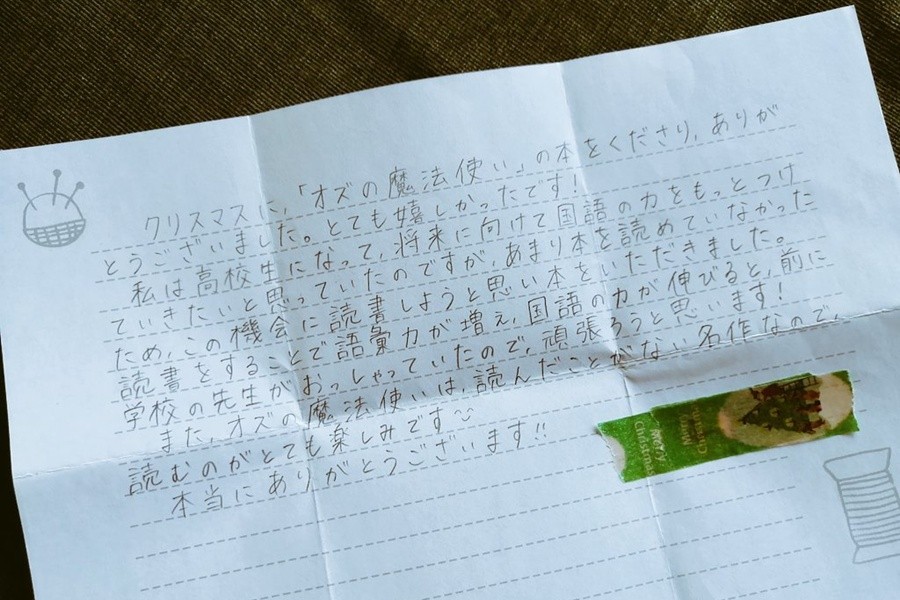 クリスマスに,「オズの魔法使い」の本をくださり,ありが
とうございました。とても嬉しかったです!
私は高校生になって,将来に向けて国語の力をもっとつけ
ていきたいと思っていたのですが,あまり本を読めていなかった
ため,この機会に読書しようと思い本をいただきました。
読書をすることで語彙力が増え,国語の力が伸びると,前に
学校の先生がおっしゃっていたので,頑張ろうと思います!
また,オズの魔法使いは,読んだことがない名作なので,
読むのがとても楽しみです
本当にありがとうございます!!
Merry
Christmas